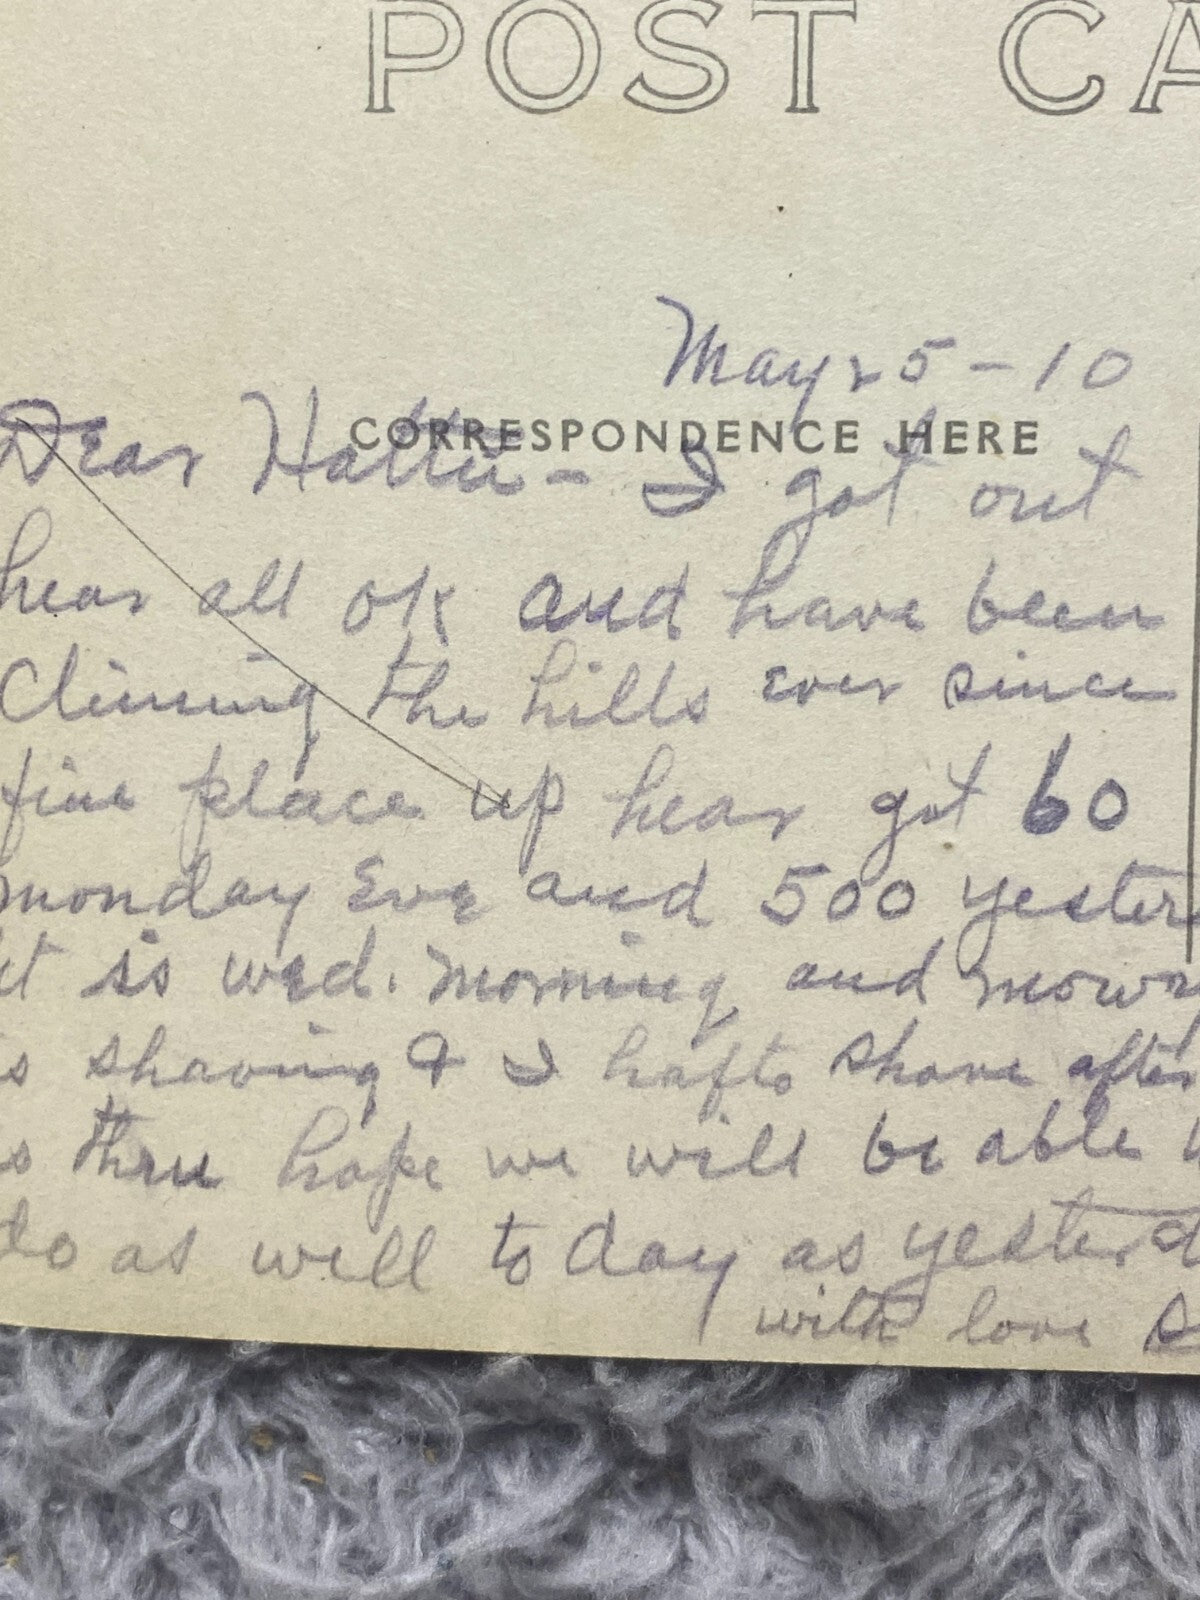 POST CA
May 25-10
CORRESPONDENCE HERE
Dear Hattie - I got out
hear all ok and have been
Climing the hills ever since
fine place up hear got 60
monday Eve and 500 yester
it is wed. morning and
is shaving & I hafto shave after
thru hope we will be able
do as well to day as yesterd
with love